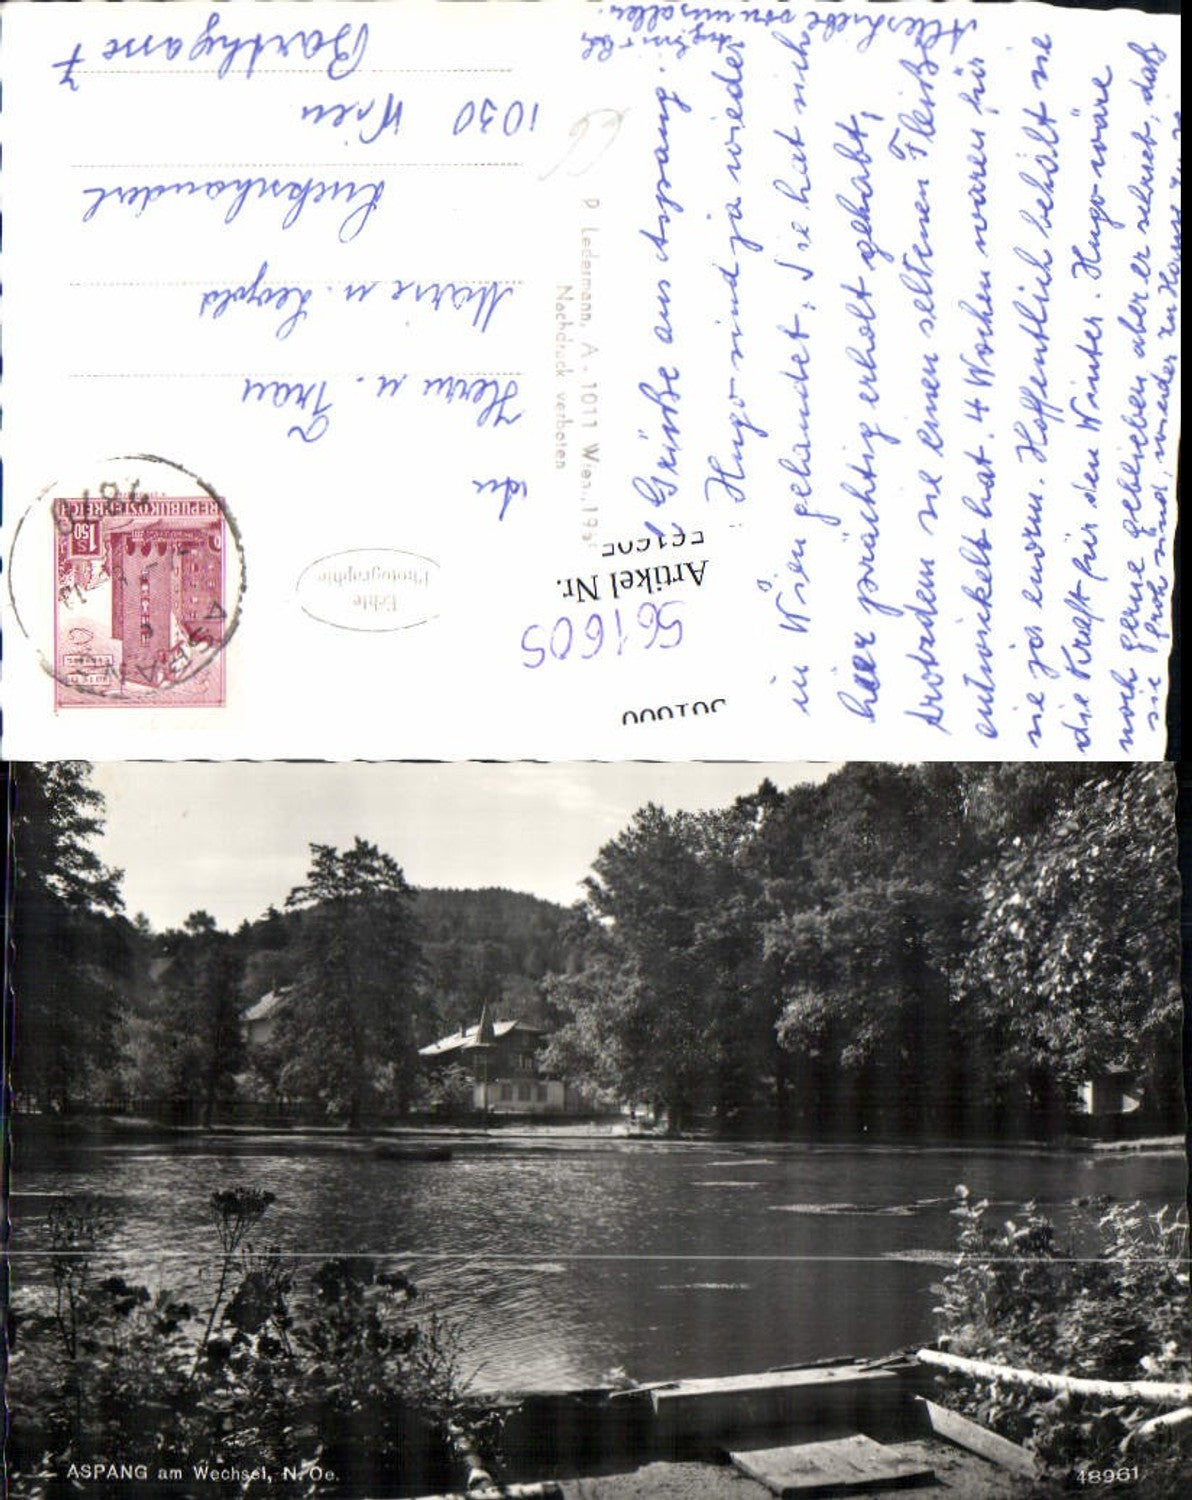 Grüße aus Aspang.
Hugo sind ja wieder
in Wien gelandet. Sie hat sich
hier prächtig erholt gehabt,
trotzdem sie einen seltenen Fleiß
entwickelt hat. 4 Wochen waren für
sie ja enorm. Hoffentlich behält sie
die Kraft für den Winter. Hugo wäre
noch gerne geblieben, aber er schrieb, daß
sie froh sind, wieder zu Hause zu
Alles Liebe von uns allen.
P. Ledermann, A - 1011 Wien, 19
Nachdruck verboten
An
Herrn u. Frau
Marie u. Leopold
1030 Wien
Barthgasse 7
REPUBLIK ÖSTERREICH
S 1.50
2870
ASPANG
Echte
Photographie
Artikel Nr.
561605
561605
ASPANG am Wechsel, N. Oe.
48961